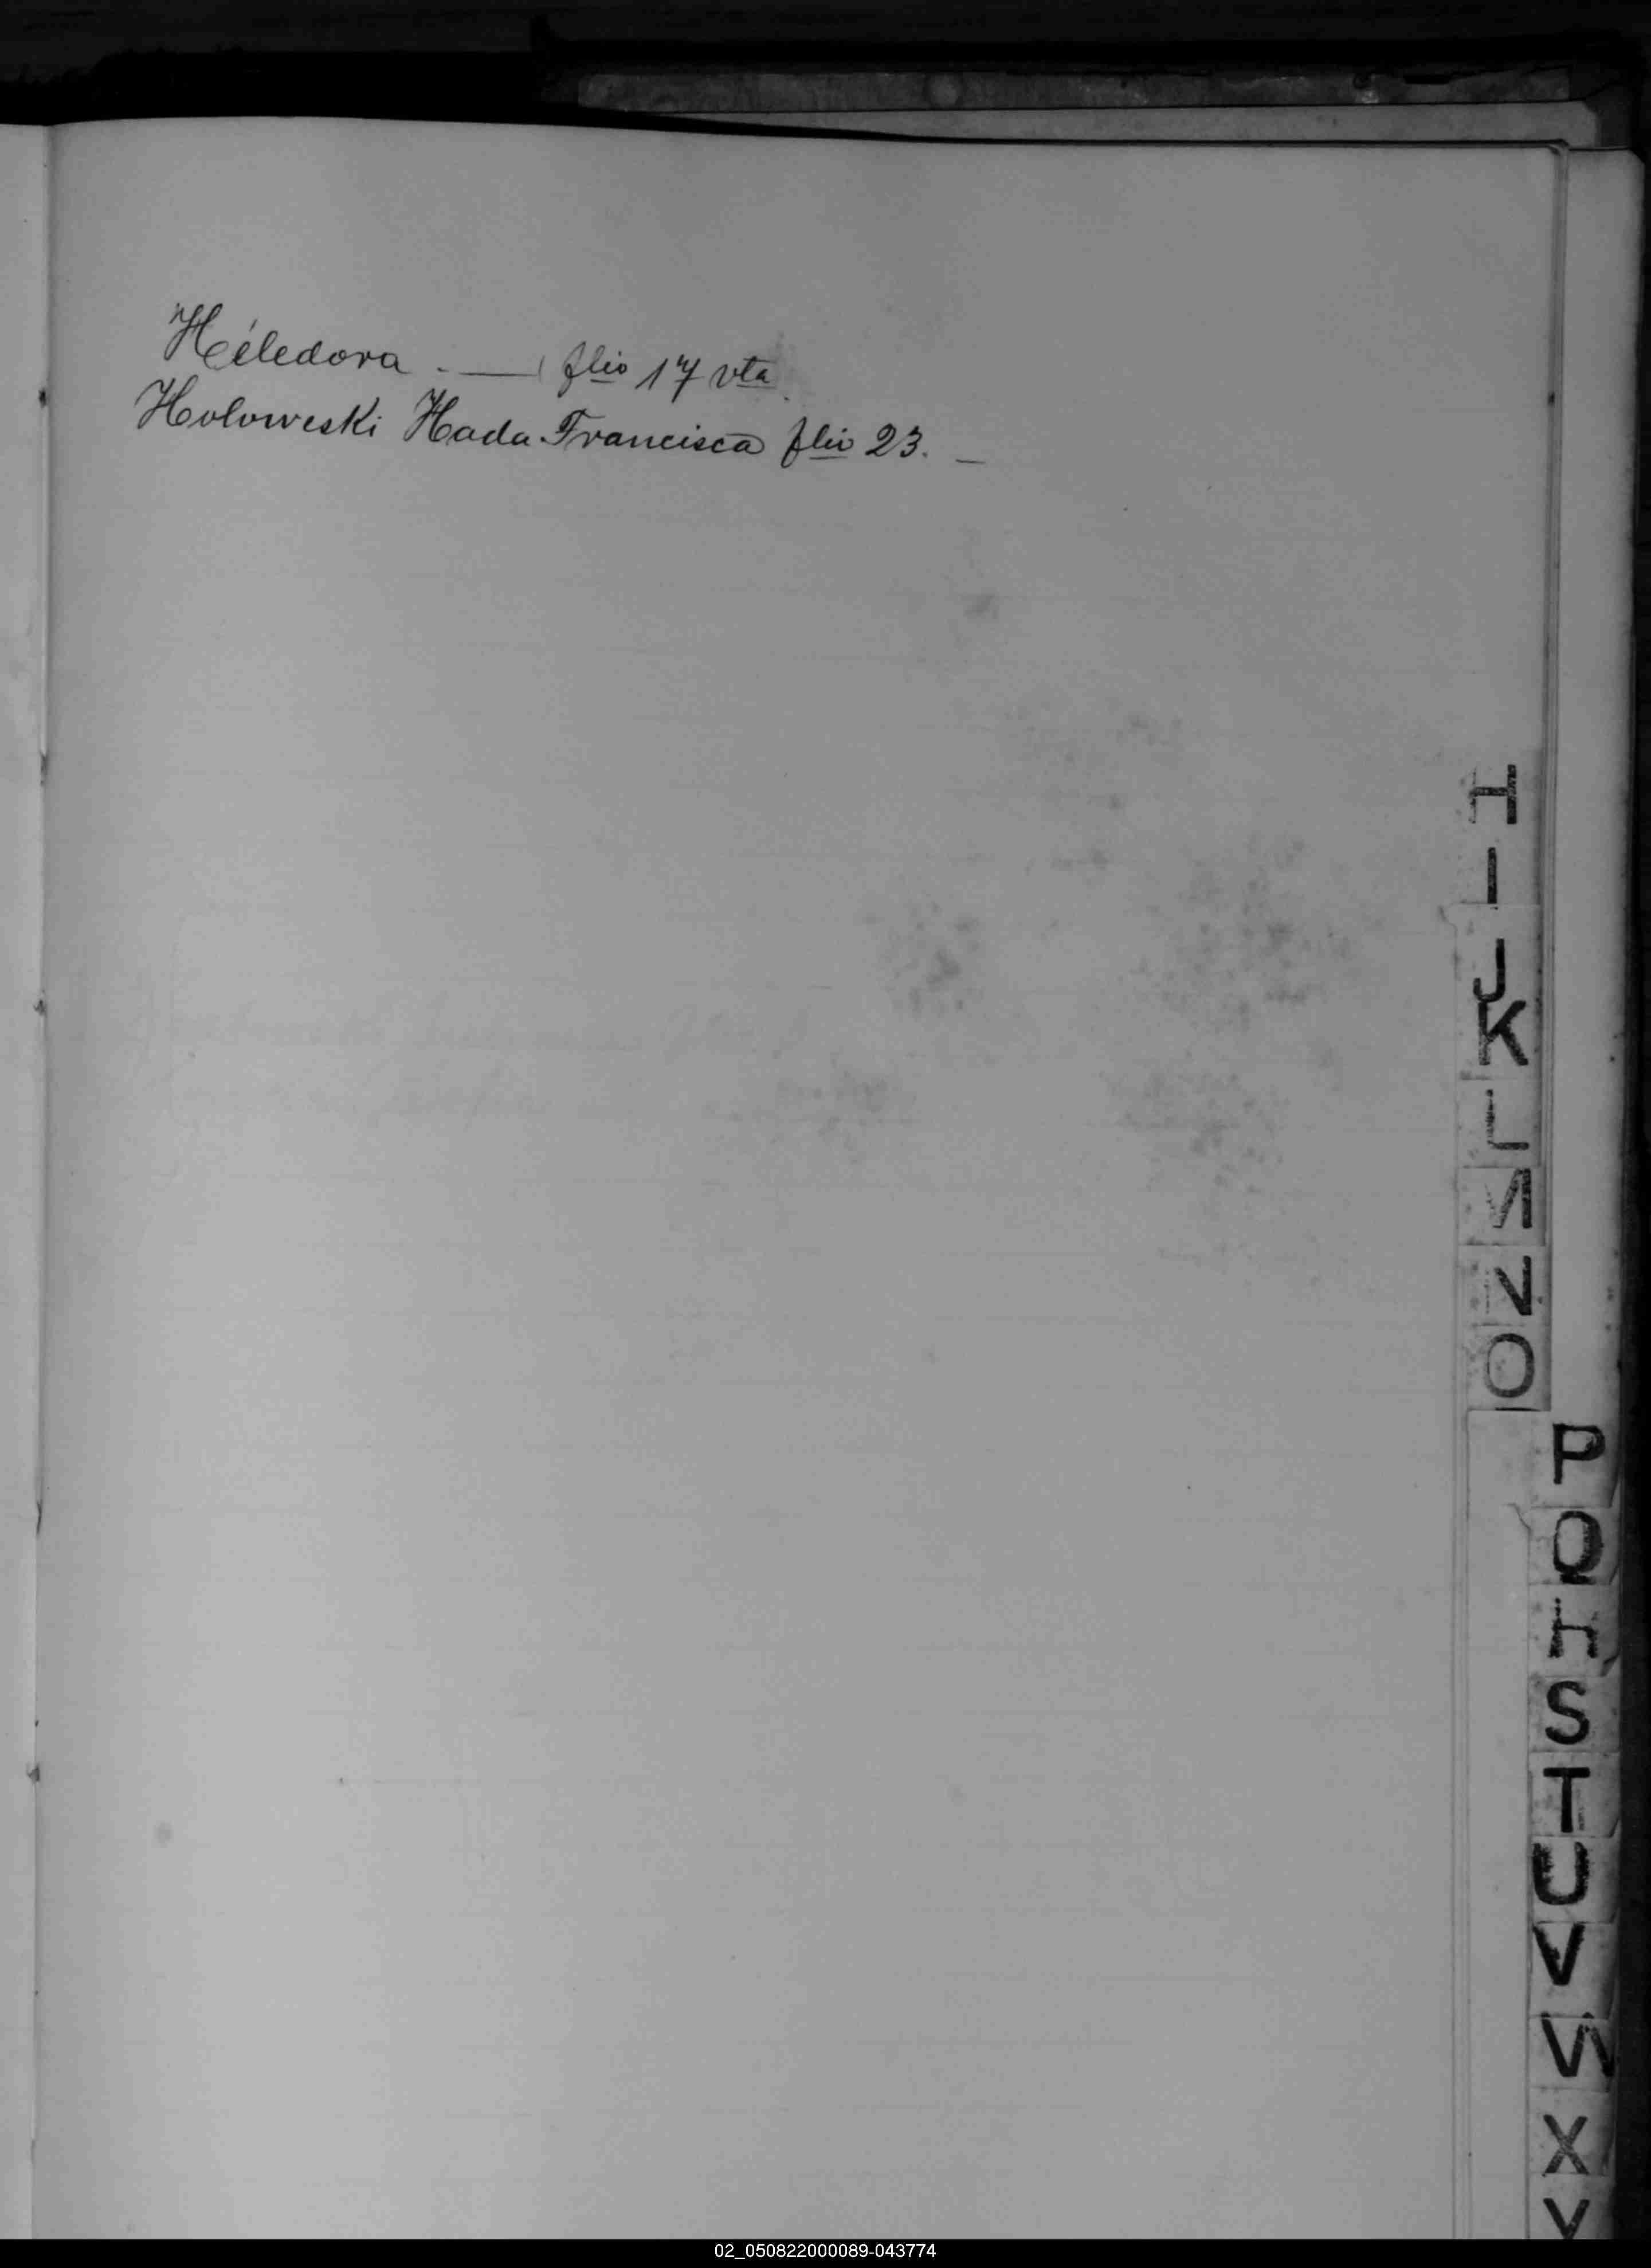 Héledora . — flio 17 vta
Holoweski Hada Francisca flio 23. —
H
I
J
K
L
M
N
O
P
Q
R
S
T
U
V
W
X
Y
02_050822000089-043774